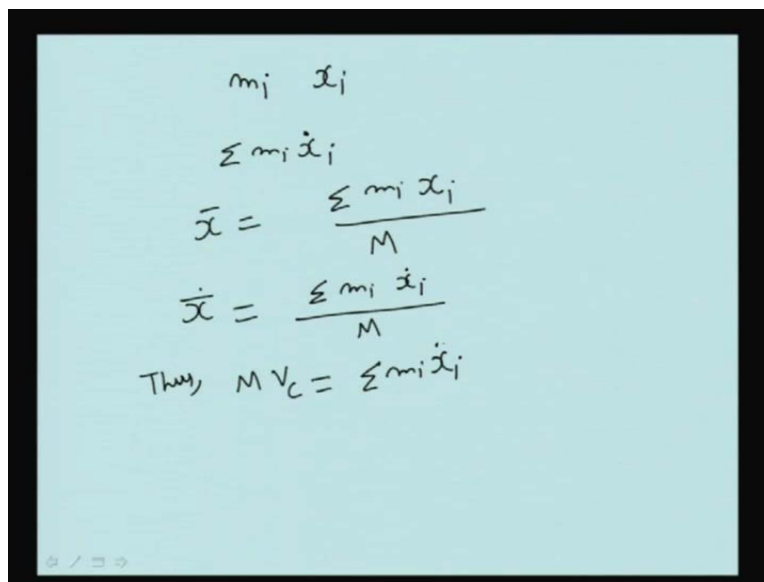 mᵢ xᵢ
Σ mᵢ ẋᵢ
x̄ = Σ mᵢ xᵢ / M
x̄̇ = Σ mᵢ ẋᵢ / M
Thus, M V_C = Σ mᵢ ẋᵢ